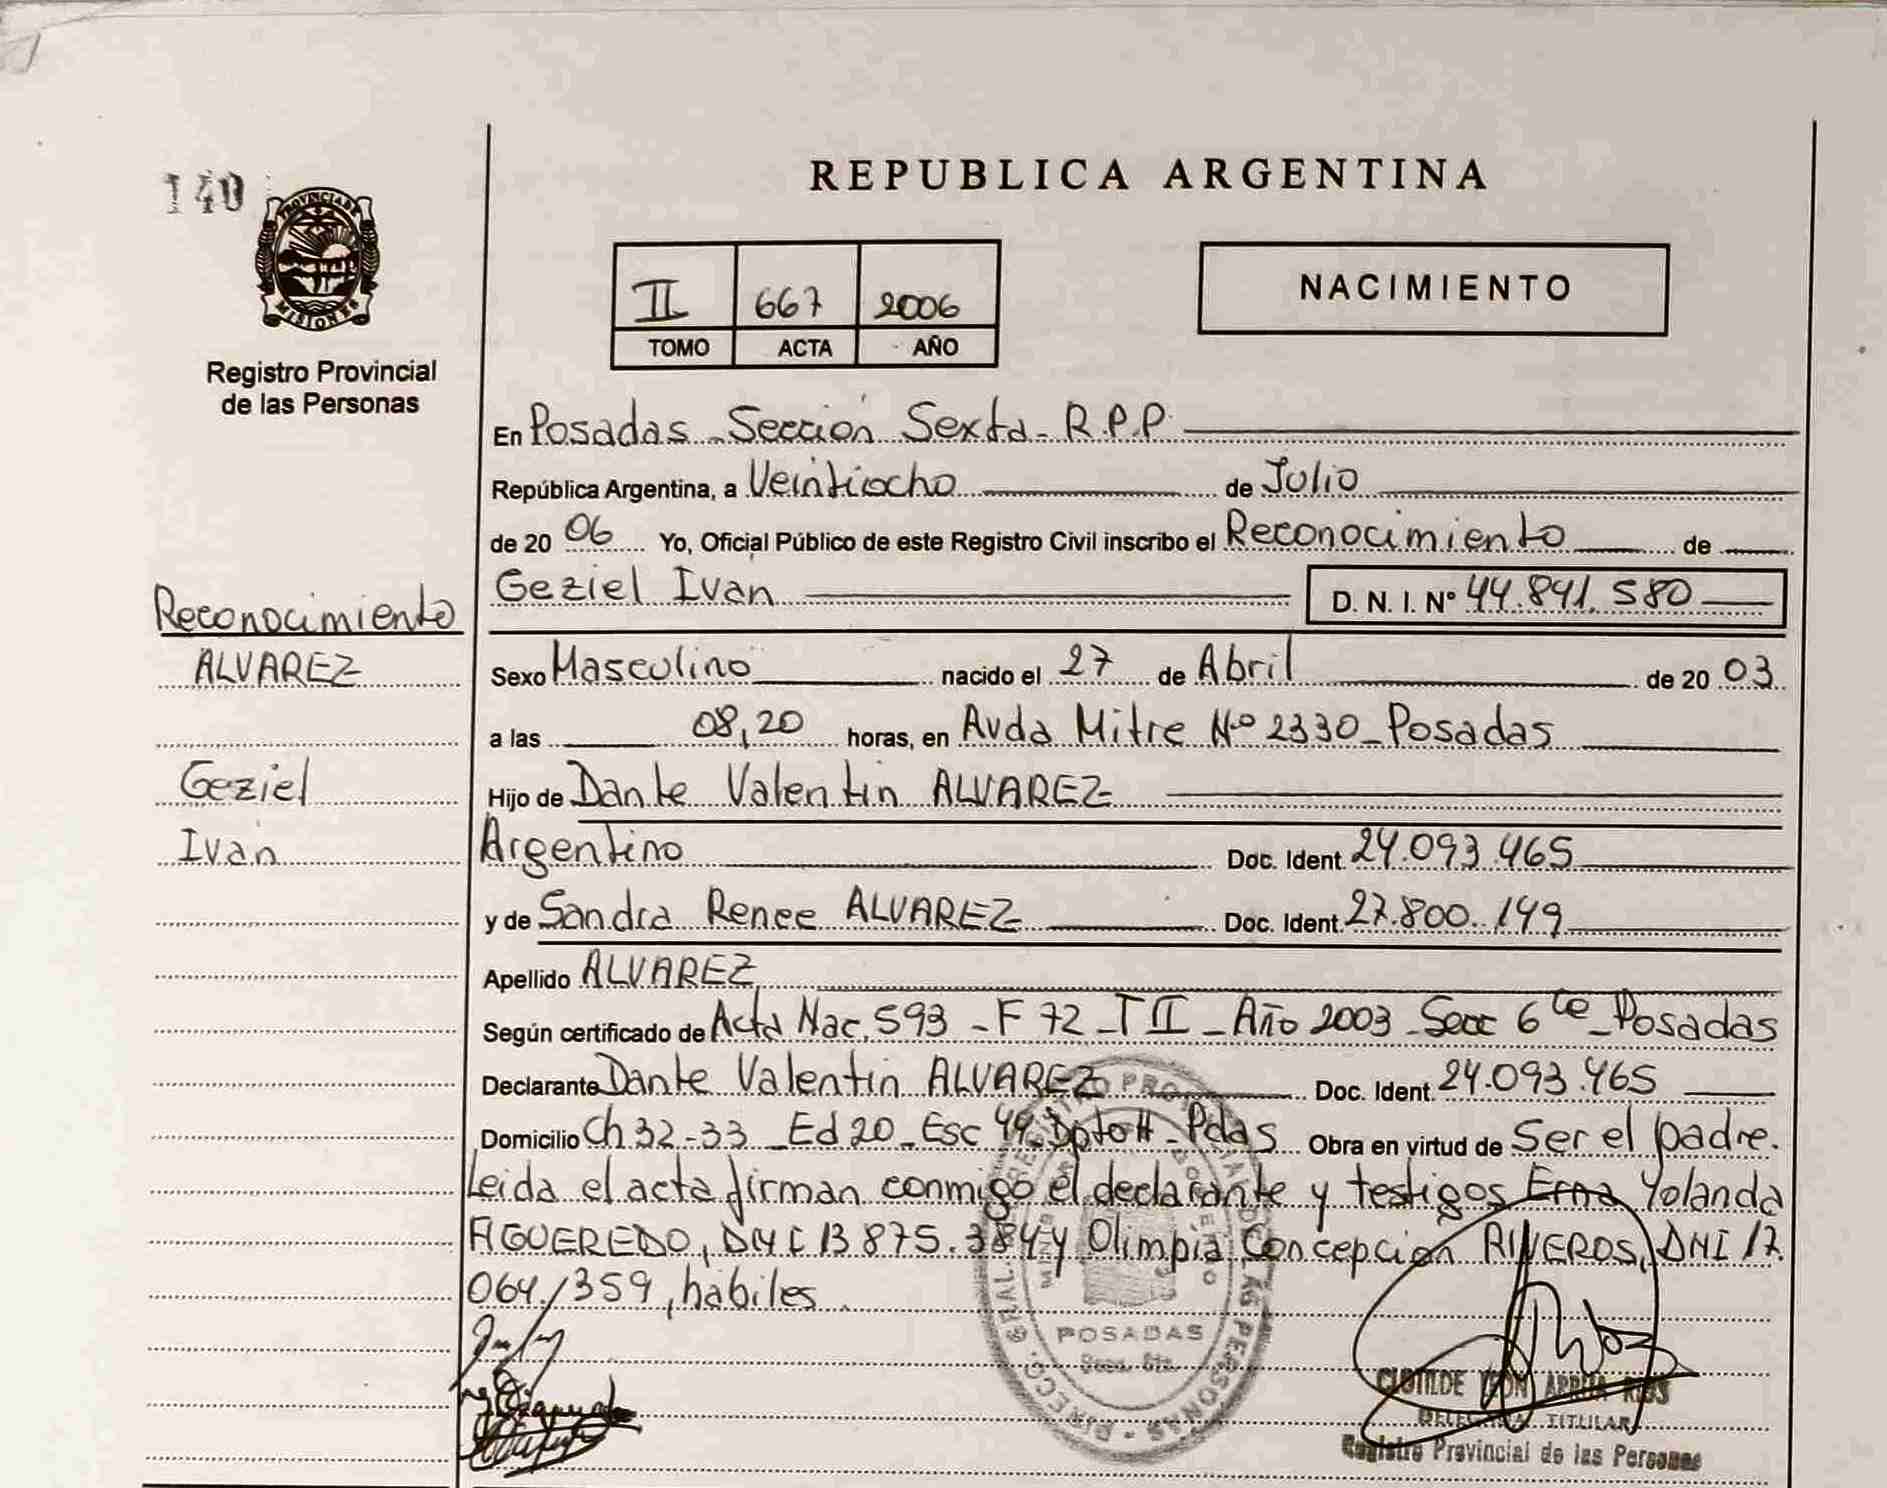 REPUBLICA ARGENTINA
140
PROVINCIA DE
MISIONES
Registro Provincial
de las Personas
II 667 2006
TOMO ACTA AÑO
NACIMIENTO
En Posadas - Sección Sexta - R.P.P.
República Argentina, a Veintiocho de Julio
de 20 06 Yo, Oficial Público de este Registro Civil inscribo el Reconocimiento de
Geziel Ivan D. N. I. Nº 44.841.580
Reconocimiento
ALVAREZ
Geziel
Ivan
Sexo Masculino nacido el 27 de Abril de 20 03
a las 08,20 horas, en Avda Mitre Nº 2330 - Posadas
Hijo de Dante Valentin ALVAREZ
Argentino Doc. Ident. 24.093.465
y de Sandra Renee ALVAREZ Doc. Ident. 27.800.149
Apellido ALVAREZ
Según certificado de Acta Nac. 593 - F 72 - T II - Año 2003 - Secc 6ta - Posadas
Declarante Dante Valentin ALVAREZ Doc. Ident. 24.093.465
Domicilio Ch 32-33 - Ed 20 - Esc 49 - Dpto H - Pdas Obra en virtud de Ser el padre.
Leida el acta firman conmigo el declarante y testigos Erna Yolanda
FIGUEREDO, DNI 13.875.384 y Olimpia Concepcion RIVEROS, DNI 17.
064.359, habiles
POSADAS
Secc. 6ta.
CLOTILDE RIOS
DELEGADA TITULAR
Registro Provincial de las Personas